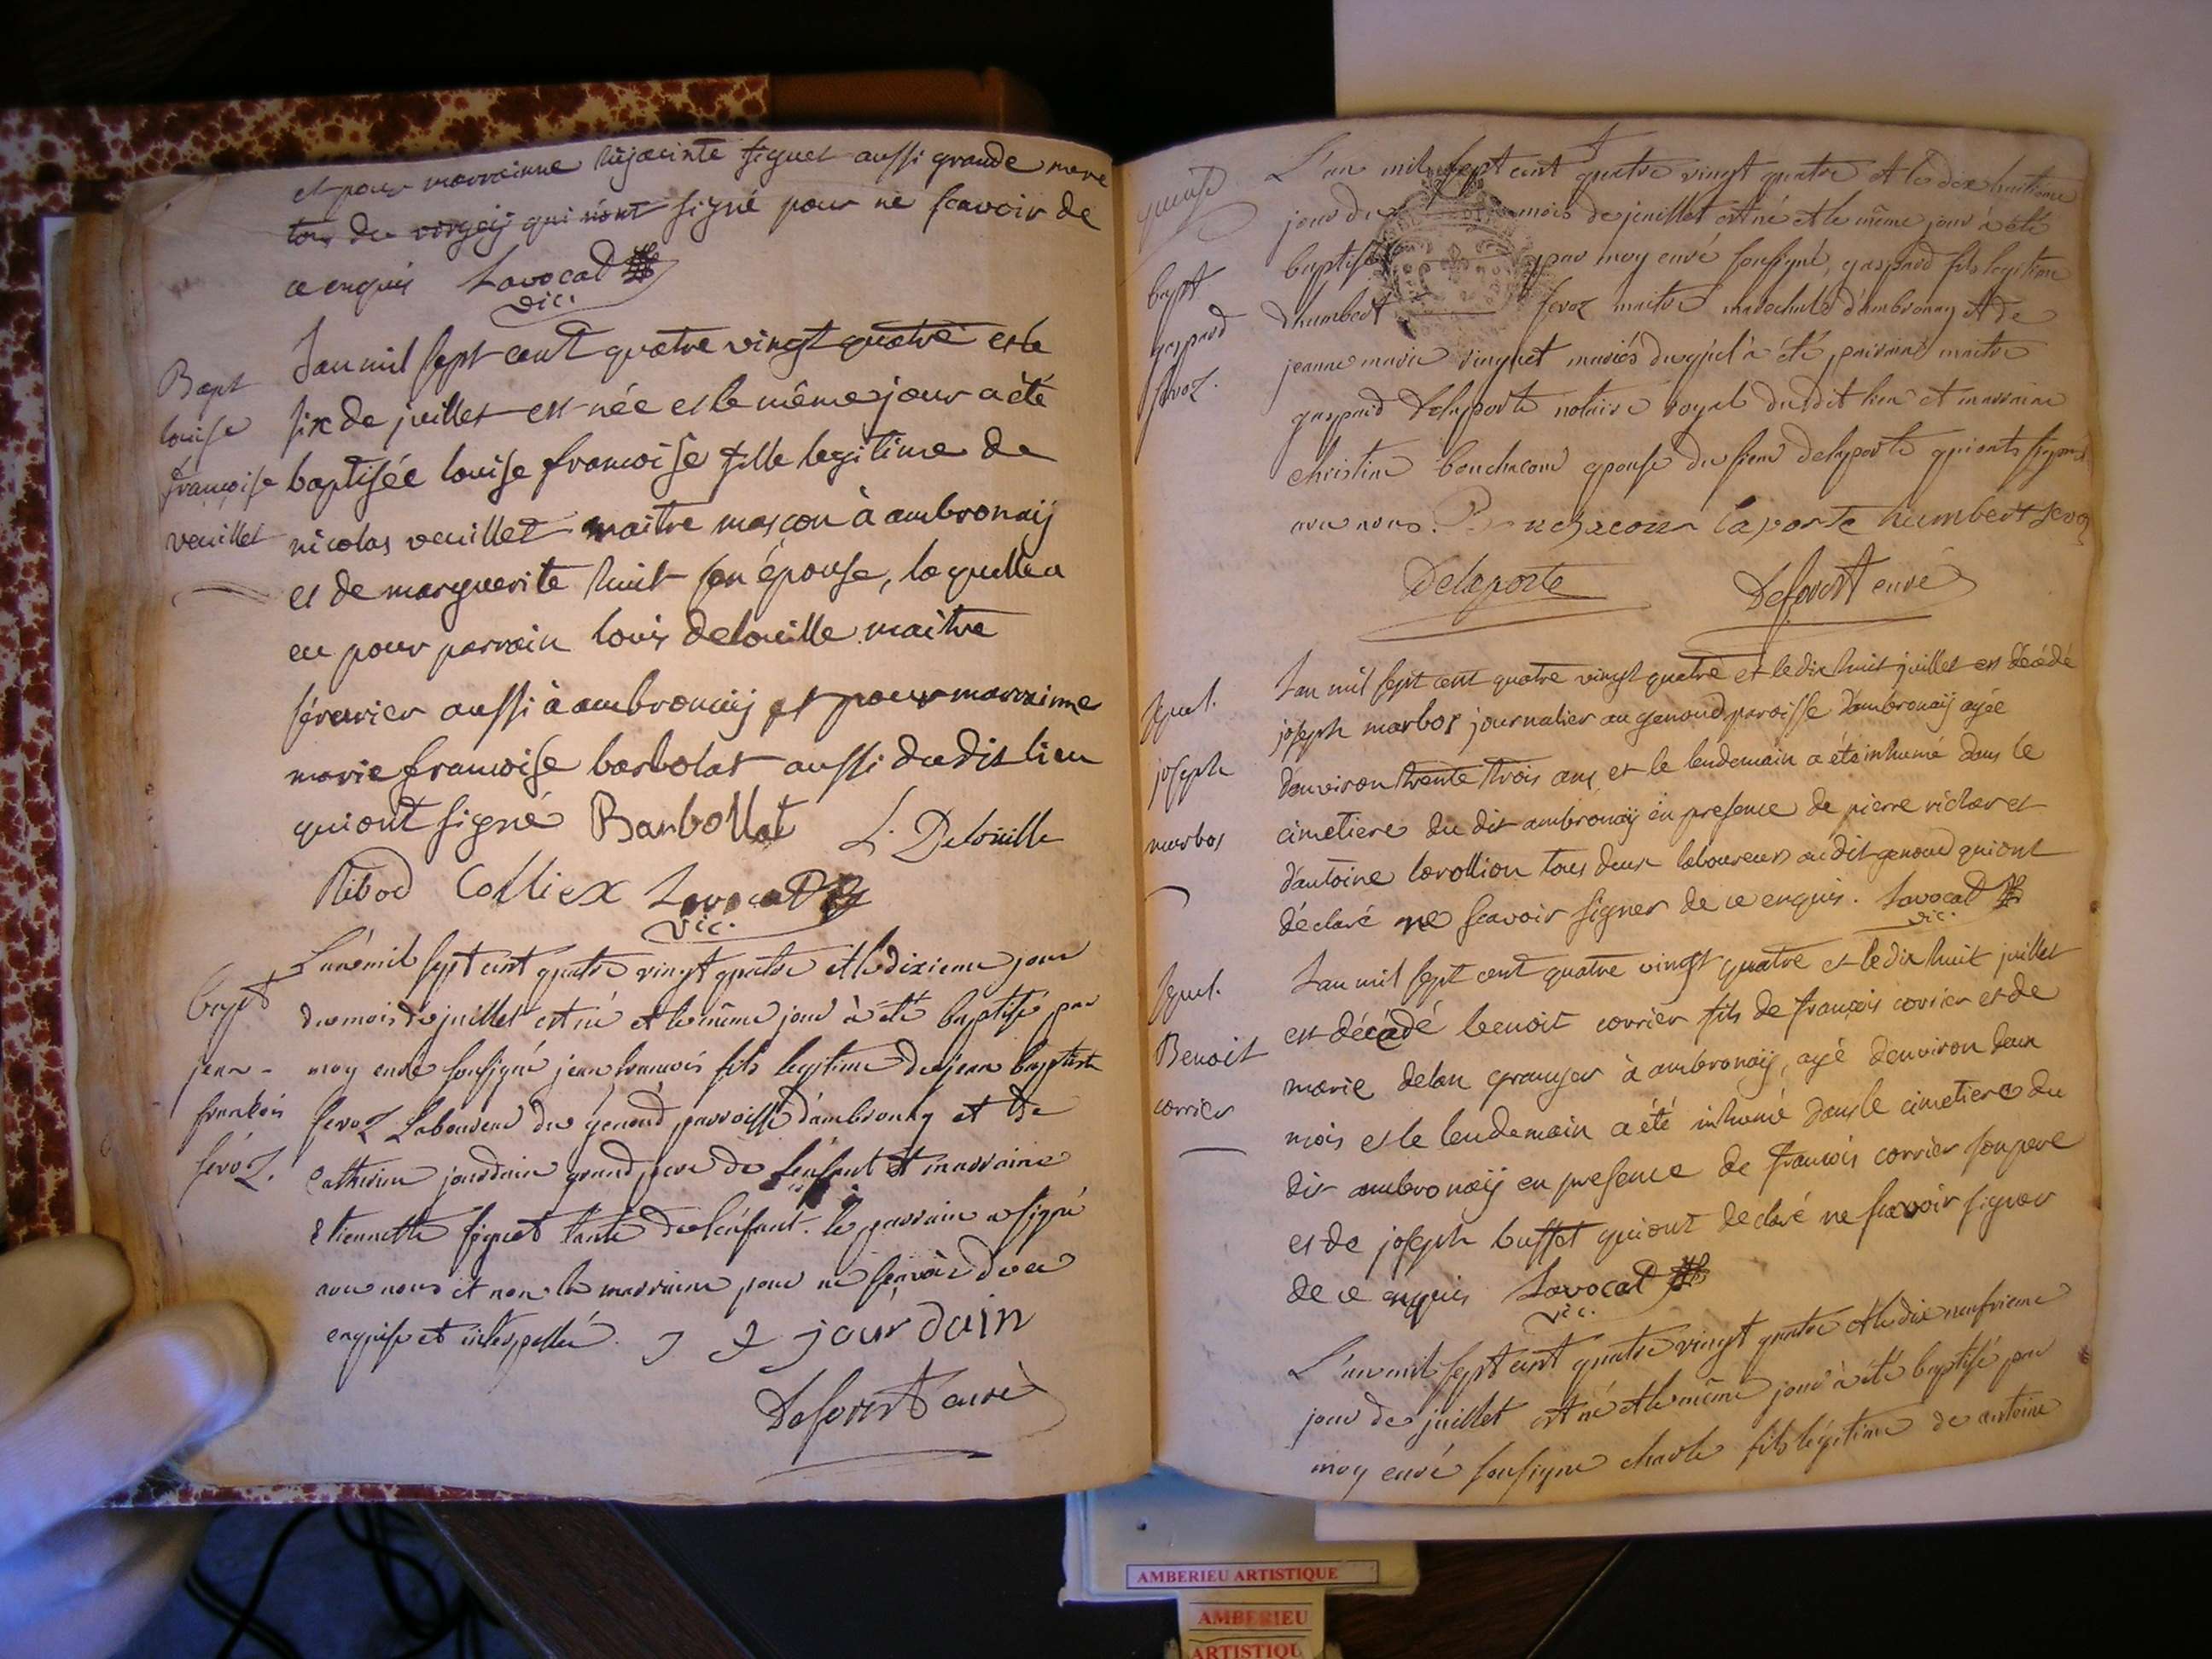 et pour marrainne hijacinte siguet aussi grande mere
tous de vorgeÿ qui n'ont signé pour ne scavoir de
ce enquis Lavocad
vic.
Bapt
louise
françoise
veuillet
Lan mil sept cent quatre vingt quatre et le
six de juillet est née et le même jour a été
baptisée louise francoise fille legitime de
nicolas veuillet maitre masçon à ambronaÿ
et de marguerite huit son épouse, laquelle a
eu pour parrain louis delouille maitre
serrurier aussi à ambronaÿ et pour marrainne
marie francoise barbolat aussi du dit lieu
qui ont signé Barbollat L. Delouille
Ribod Colliex Lavocad
vic.
bapt
jean-
francois
féroz.
L'an mil sept cent quatre vingt quatre et le dixieme jour
du mois de juillet est né et le même jour à été baptisé par
moy curé sousigné jean francois fils legitime de jean baptiste
feroz laboureur du genoud parroisse d'ambronay et de
Catherine jourdain grand pere de l'enfant et marraine
Etiennette siguet tante de l'enfant. le parrain a signé
avec nous et non la marraine pour ne sçavoir de ce
enquise et interpellée. jourdain
Deforest curé
L'an mil sept cent quatre vingt quatre et le dix huitieme
jour du mois de juillet est né et le même jour à été
baptisé par moy curé sousigné, gaspard fils legitime
d'humbert feroz maitre marechal d'ambronay et de
jeanne marie mariés duquel à été parrain maitre
gaspard Delaporte notaire royal dudit lieu et marraine
christine bouchacour epouse du sieur delaporte qui ont signé
avec nous. Bouchacour laporte humbert feroz
Delaporte Deforest curé
bapt
gaspard
feroz.
Sepul.
joseph
marbos
Lan mil sept cent quatre vingt quatre et le dix huit juillet est décédé
joseph marbos journalier au genoud paroisse d'ambronaÿ agée
d'environ trente trois ans et le lendemain a été inhumé dans le
cimetiere du dit ambronaÿ en presence de pierre richard et
d'antoine lavollion tous deux laboureurs au dit genoud qui ont
déclaré ne scavoir signer de ce enquis. Lavocad
vic.
Sepul.
Benoit
corrier
Lan mil sept cent quatre vingt quatre et le dix huit juillet
est décédé benoit corrier fils de françois corrier et de
marie delan granger à ambronaÿ, agé d'environ deux
mois et le lendemain a été inhumé dans le cimetiere du
dit ambronaÿ en presence de francois corrier son pere
et de joseph buffet qui ont declaré ne scavoir signer
de ce enquis Lavocad
vic.
L'an mil sept cent quatre vingt quatre et le dix neufvieme
jour de juillet est né et le même jour à été baptisé par
moy curé sousigné charle fils légitime de antoine
AMBERIEU ARTISTIQUE
AMBERIEU
ARTISTIQU